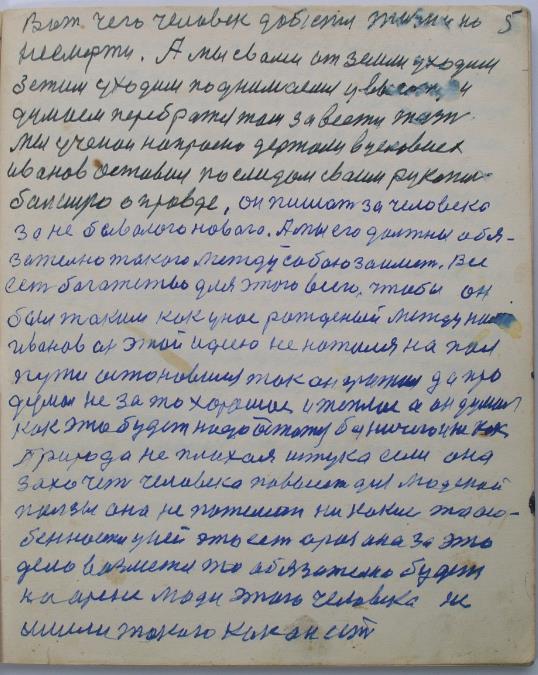 Вот чего человек добется жизни но 5
несмерти. А мы свами от земли уходим
Зетим уходим поднимаемся увысоту, и
думаем перебратся там завести жизт
Мы ученои напрасно держали вусловиех
иванов оставил последом своим рукопис
бамширо оправде, он пишет за человека
за не бывалого нового. А мы его должны обя-
зателно такого между собою заимет. Все
сет богатство для этого всего, чтобы он
был таким как унас рожденый между нами
иванов он этой идею не нашился на пол
пути остоновится так он тратил да про
думал не за то хорошое и теплое а он думал
как это будет надо остатся без ничего и не как
Природа не плихая штука если она
захочет человека повысет для людской
ползы она не пожелеит ни какие тваю-
бенности у ней это ест ораз она за это
дело возметса то обязателно будет
на арене люди этого человека не
имели такого как он ест